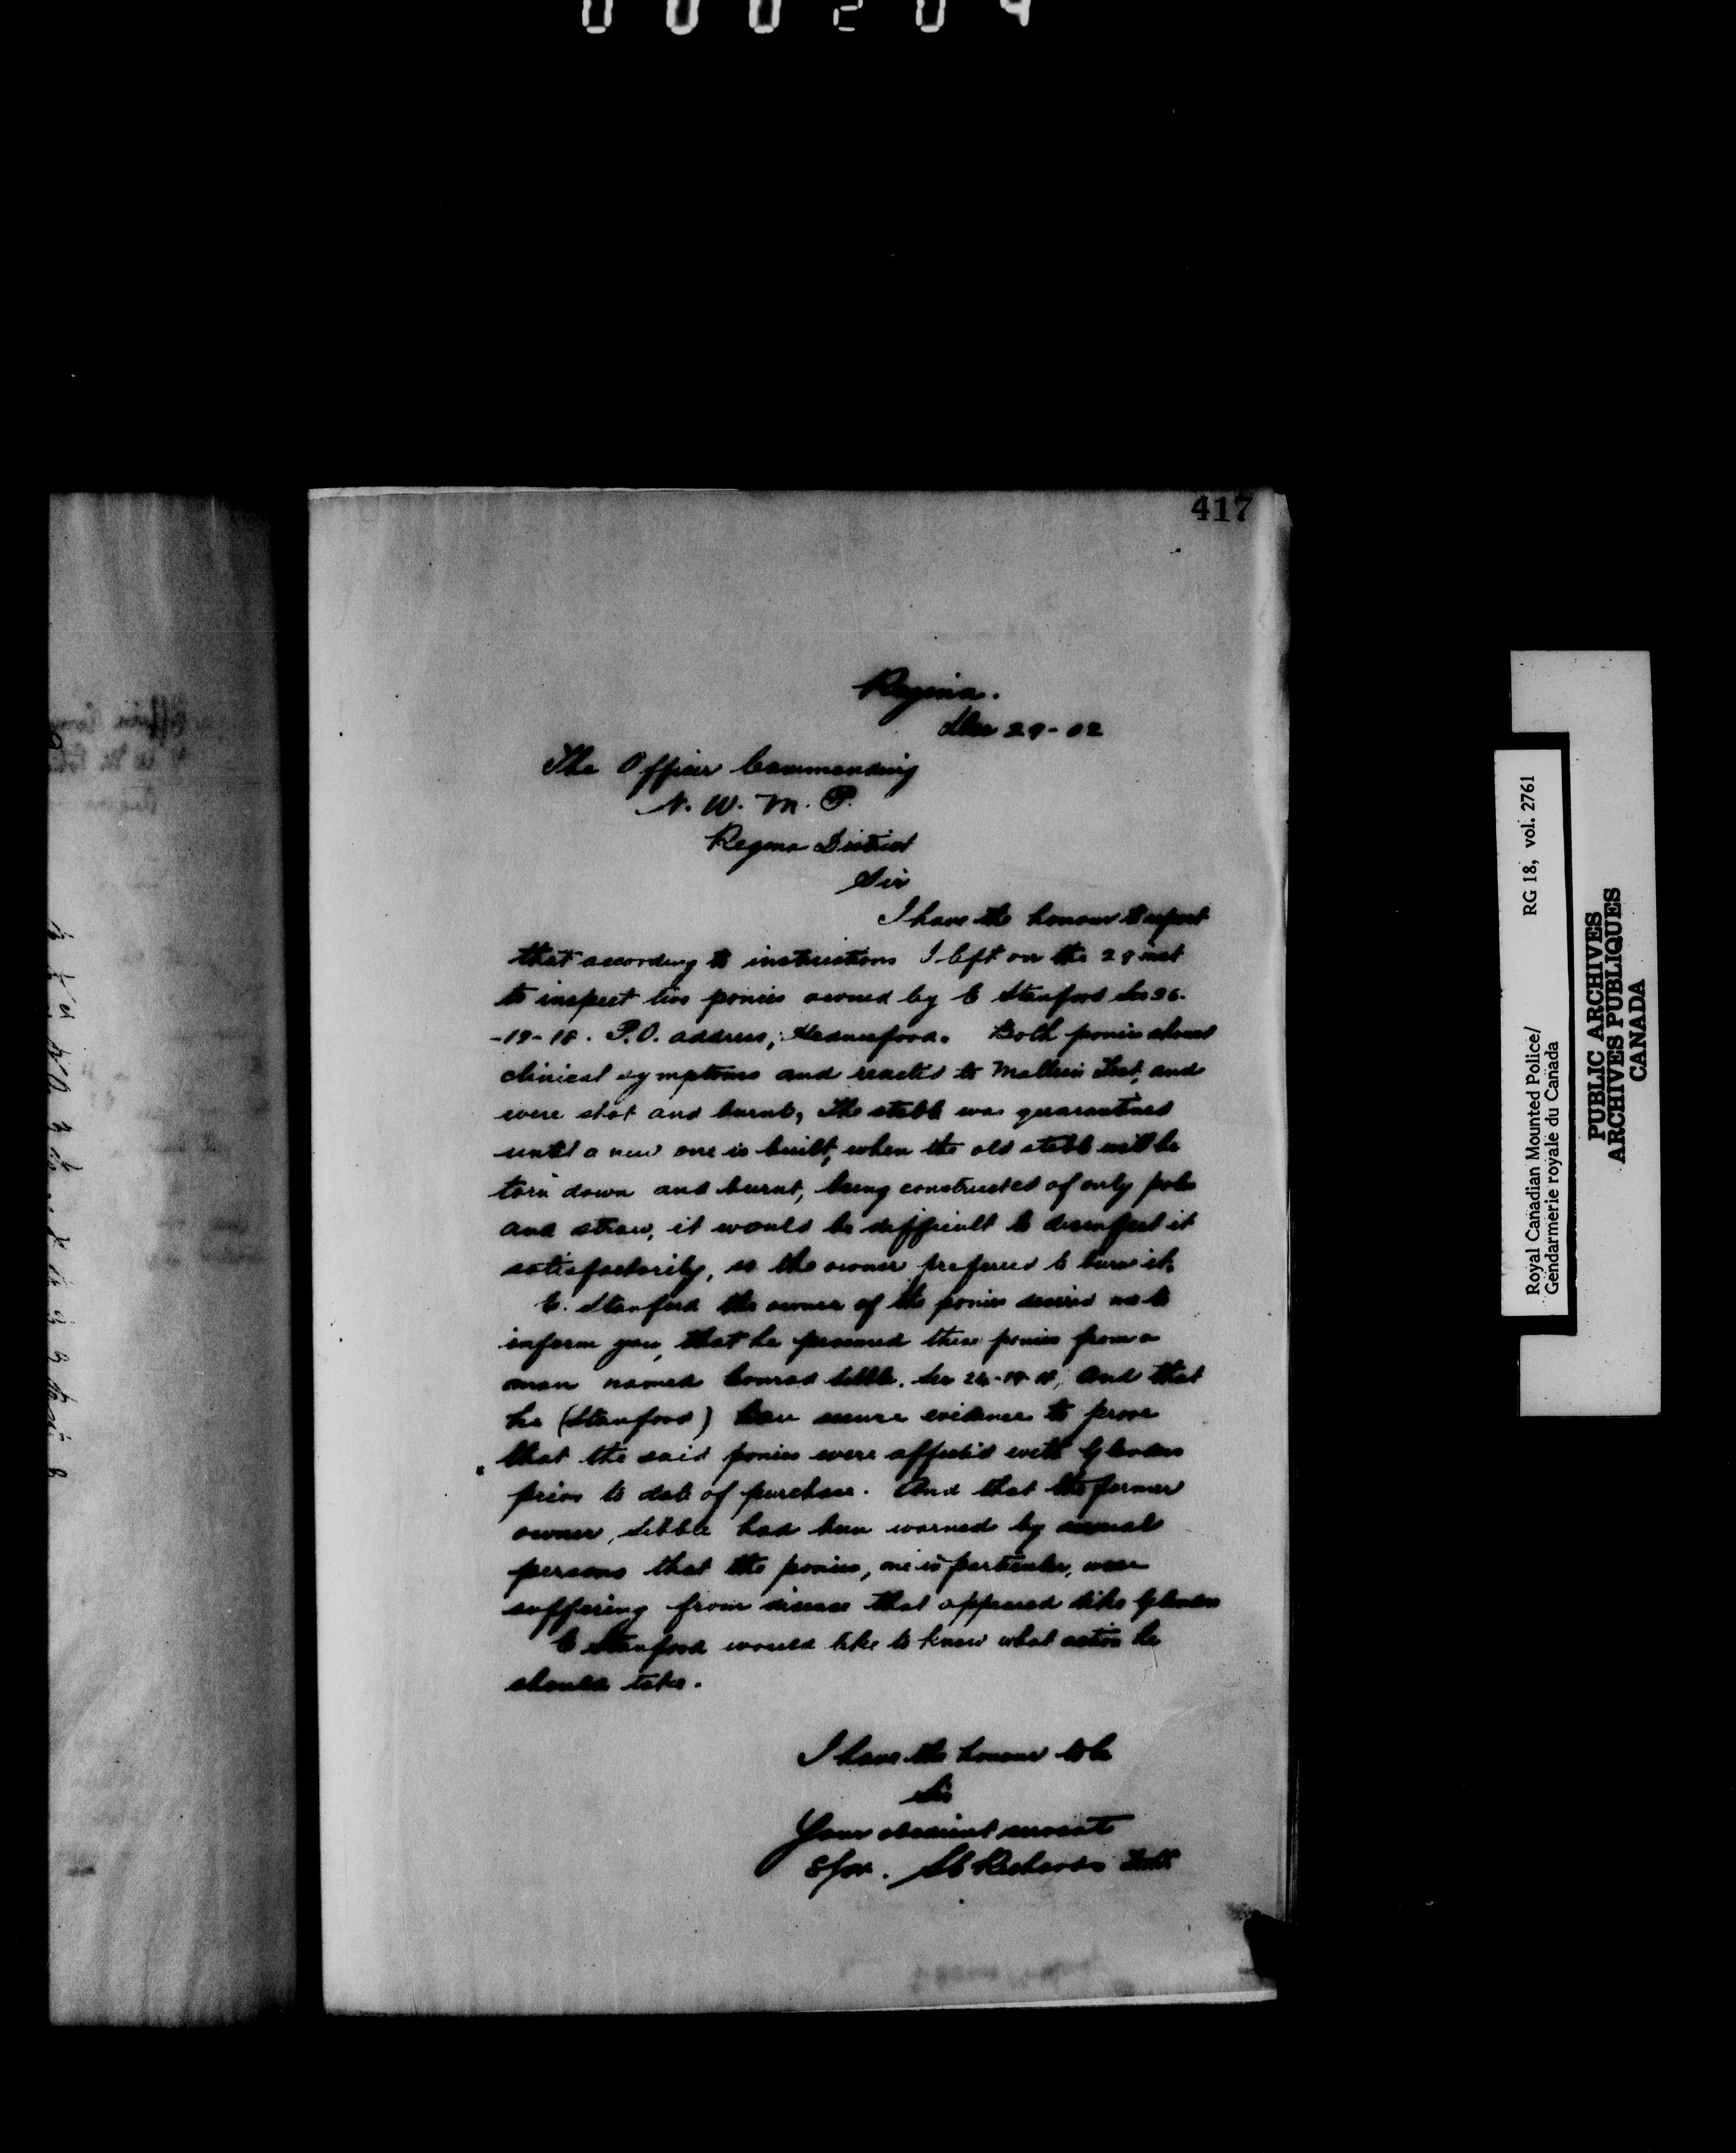 000204
417
Regina.
Dec 29-02
The Officer Commanding
N. W. M. P.
Regina District
Sir
I have the honour to report
that according to instructions I left on the 28 inst
to inspect two ponies owned by E Stanford Sec 36.
-19-18. P.O. address; Hednesford. Both ponies showed
clinical symptoms and reacted to Mallein Test, and
were shot and burnt, The stable was quarantined
until a new one is built, when the old stable will be
torn down and burnt, being constructed of only poles
and straw, it would be difficult to disinfect it
satisfactorily, so the owner preferred to burn it.
E. Stanford the owner of the ponies desired me to
inform you, that he procured these ponies from a
man named Conrad Sebble. Sec 24-19-18, and that
he (Stanford) can secure evidence to prove
that the said ponies were affected with Glanders
prior to date of purchase. And that the former
owner, Sebble had been warned by several
persons that the ponies, one in particular, were
suffering from disease that appeared like Glanders
E Stanford would like to know what action he
should take.
I have the honour to be
Sir
Your obedient servant
S/Sgt. Richards
Royal Canadian Mounted Police/ RG 18, vol. 2761
Gendarmerie royale du Canada
PUBLIC ARCHIVES
ARCHIVES PUBLIQUES
CANADA